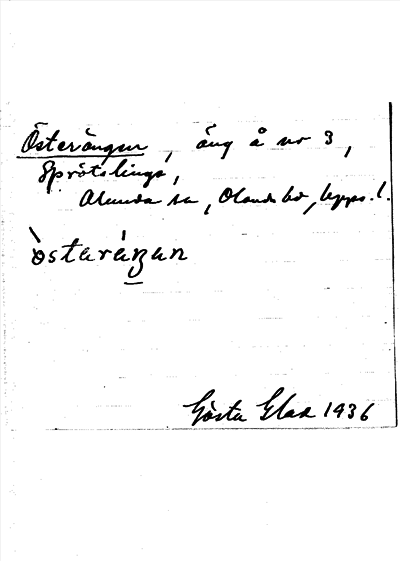 Österängen, äng å nr 3,
Sprötslinga,
Alunda sn, Olands hd, Upps. l.
òstaráŋan
Gösta Glad 1936